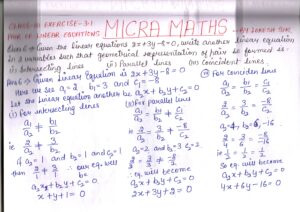 CLASS-10 EXERCISE-3.1
MICRA MATHS
PAIR OF LINEAR EQUATIONS
Ques 6 → Given the linear equations 2x+3y-8=0, write another linear equation
in 2 variables such that geometrical representation of pair so formed is-
(i) Intersecting lines (ii) Parallel lines (iii) Coincident lines
Ans 6 → Given Linear Equation is 2x+3y-8=0
Here we see a₁=2 b₁=3 and c₁=-8
Let the linear equation another be a₂x+b₂y+c₂=0
(i) For intersecting lines
a₁/a₂ ≠ b₁/b₂
ie 2/a₂ ≠ 3/b₂
if a₂=1 and b₂=1 and c₂=1
then 2/1 ≠ 3/1 ∴ our eq. will be
a₂x+b₂y+c₂=0
x+y+1=0
(ii) For parallel lines
a₁/a₂ = b₁/b₂ ≠ c₁/c₂
ie 2/a₂ = 3/b₂ ≠ -8/c₂
a₂=2 and b₂=3 c₂=2
2/2 = 3/3 ≠ -8/2
so eq. will become
a₂x+b₂y+c₂=0
2x+3y+2=0
(iii) For Coinciden lines
a₁/a₂ = b₁/b₂ = c₁/c₂
2/a₂ = 3/b₂ = -8/c₂
a₂=4, b₂=6, -16
2/4 = 3/6 = -8/-16
ie 1/2 = 1/2 = 1/2
∴ eq. will become
a₂x+b₂y+c₂=0
4x+6y-16=0